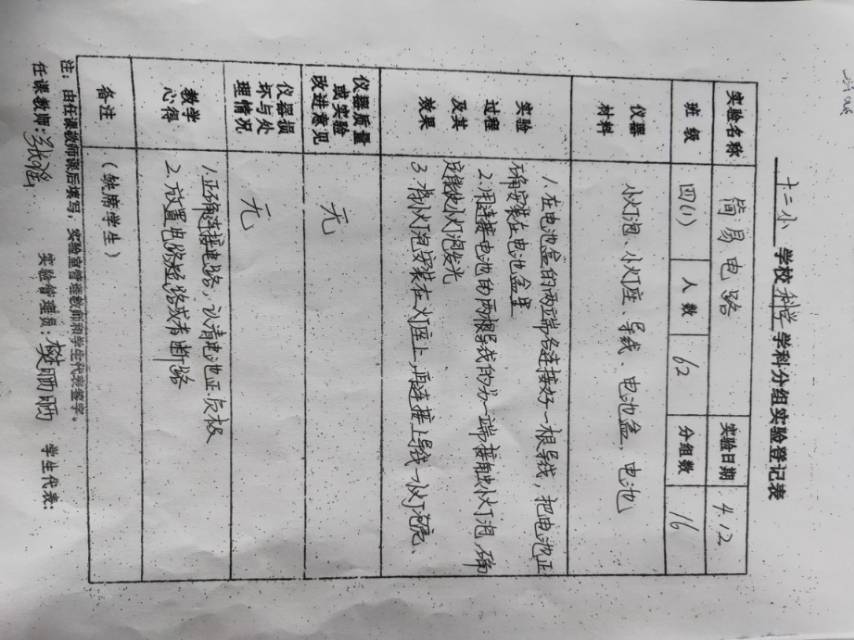 十二小 学校科学学科分组实验登记表
实验名称 简易电路 实验日期 4.12
班级 四(1) 人数 62 分组数 16
仪器材料 小灯泡、小灯座、导线、电池盒、电池
实验过程及其效果
1.在电池盒的两端各连接好一根导线，把电池正
确安装在电池盒里
2.用连接电池的两根导线的另一端，接触小灯泡，确
定能使小灯泡发光
3.将小灯泡安装在灯座上，再连接上导线
仪器质量或实验改进意见 无
仪器损坏与处理情况 无
教学心得
1.正确连接电路，认清电池正负极
2.放置电路短路或者断路
备注 (缺席学生)
注：由任课教师课后填写，实验室管理教师和学生代表签字。
任课教师： 实验管理员：樊晒晒 学生代表：